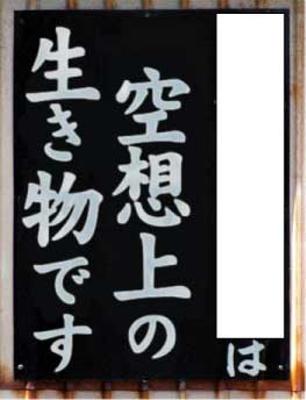 は
空想上の
生き物です